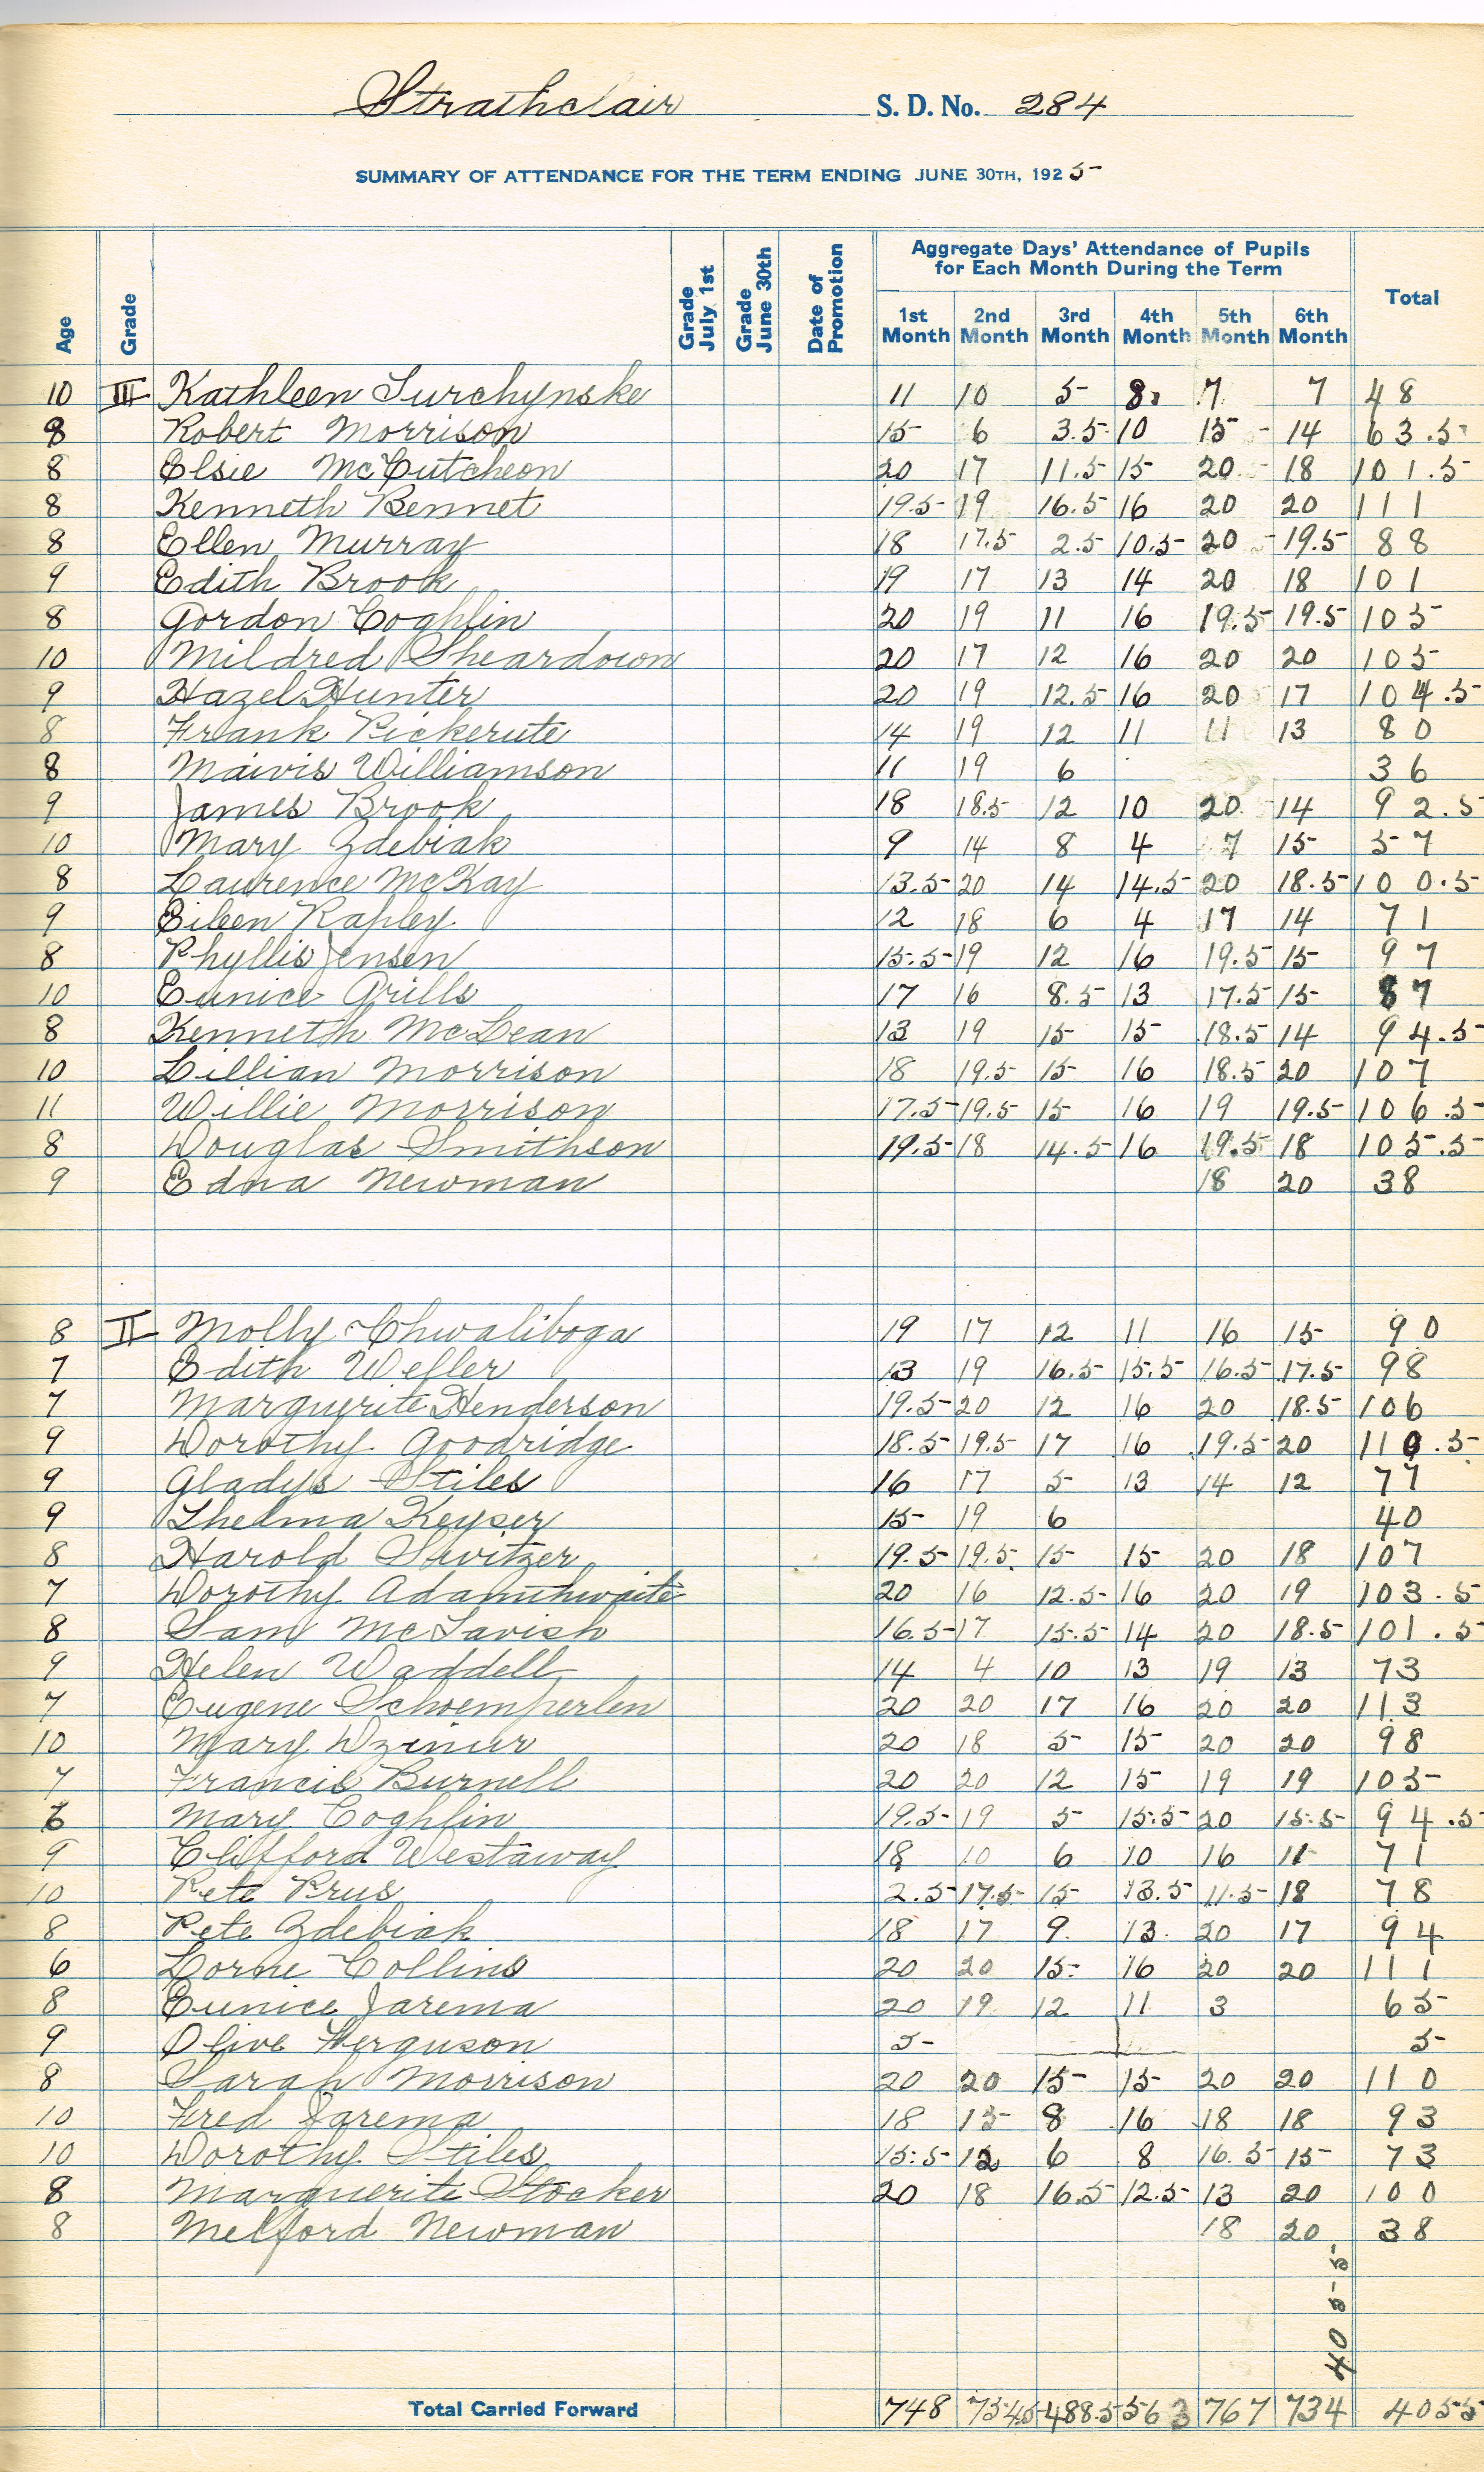 Strathclair S. D. No. 284
SUMMARY OF ATTENDANCE FOR THE TERM ENDING JUNE 30TH, 1925
Age Grade Grade July 1st Grade June 30th Date of Promotion Aggregate Days' Attendance of Pupils for Each Month During the Term Total
1st Month 2nd Month 3rd Month 4th Month 5th Month 6th Month
10 III Kathleen Surchynske 11 10 5 8 7 7 48
8 Robert Morrison 15 6 3.5 10 15 14 63.5
8 Elsie McCutcheon 20 17 11.5 15 20 18 101.5
8 Kenneth Bennet 19.5 19 16.5 16 20 20 111
8 Ellen Murray 18 17.5 2.5 10.5 20 19.5 88
9 Edith Brook 19 17 13 14 20 18 101
8 Gordon Coghlin 20 19 11 16 19.5 19.5 105
10 Mildred Sheardown 20 17 12 16 20 20 105
9 Hazel Hunter 20 19 12.5 16 20 17 104.5
8 Frank Pickerute 14 19 12 11 11 13 80
8 Maivis Williamson 11 19 6 36
9 James Brook 18 18.5 12 10 20 14 92.5
10 Mary Zdebiak 9 14 8 4 7 15 57
8 Laurence McKay 13.5 20 14 14.5 20 18.5 100.5
9 Eileen Rapley 12 18 6 4 17 14 71
8 Phyllis Jensen 15.5 19 12 16 19.5 15 97
10 Eunice Grills 17 16 8.5 13 17.5 15 87
8 Kenneth McLean 13 19 15 15 18.5 14 94.5
10 Lillian Morrison 18 19.5 15 16 18.5 20 107
11 Willie Morrison 17.5 19.5 15 16 19 19.5 106.5
8 Douglas Smithson 19.5 18 14.5 16 19.5 18 105.5
9 Edna Newman 18 20 38
8 II Molly Chwaliboga 19 17 12 11 16 15 90
7 Edith Weller 13 19 16.5 15.5 16.5 17.5 98
7 Marguerite Henderson 19.5 20 12 16 20 18.5 106
9 Dorothy Goodridge 18.5 19.5 17 16 19.5 20 110.5
9 Gladys Stiles 16 17 5 13 14 12 77
9 Thelma Keyser 15 19 6 40
8 Harold Switzer 19.5 19.5 15 15 20 18 107
7 Dorothy Adamthwaite 20 16 12.5 16 20 19 103.5
8 Sam McTavish 16.5 17 15.5 14 20 18.5 101.5
9 Helen Waddell 14 4 10 13 19 13 73
7 Eugene Schoemperlen 20 20 17 16 20 20 113
10 Mary Dzinur 20 18 5 15 20 20 98
7 Francis Burnell 20 20 12 15 19 19 105
6 Mary Coghlin 19.5 19 5 15.5 20 15.5 94.5
9 Clifford Westaway 18 10 6 10 16 11 71
10 Pete Prus 2.5 17.5 15 13.5 11.5 18 78
8 Pete Zdebiak 18 17 9 13 20 17 94
6 Lorne Collins 20 20 15 16 20 20 111
8 Eunice Jarema 20 19 12 11 3 65
9 Olive Ferguson 5 5
8 Sarah Morrison 20 20 15 15 20 20 110
10 Fred Jarema 18 15 8 16 18 18 93
10 Dorothy Stiles 15.5 12 6 8 16.5 15 73
8 Marguerite Stocker 20 18 16.5 12.5 13 20 100
8 Melford Newman 18 20 38
4055
Total Carried Forward 748 754.5 488.5 563 767 734 4055